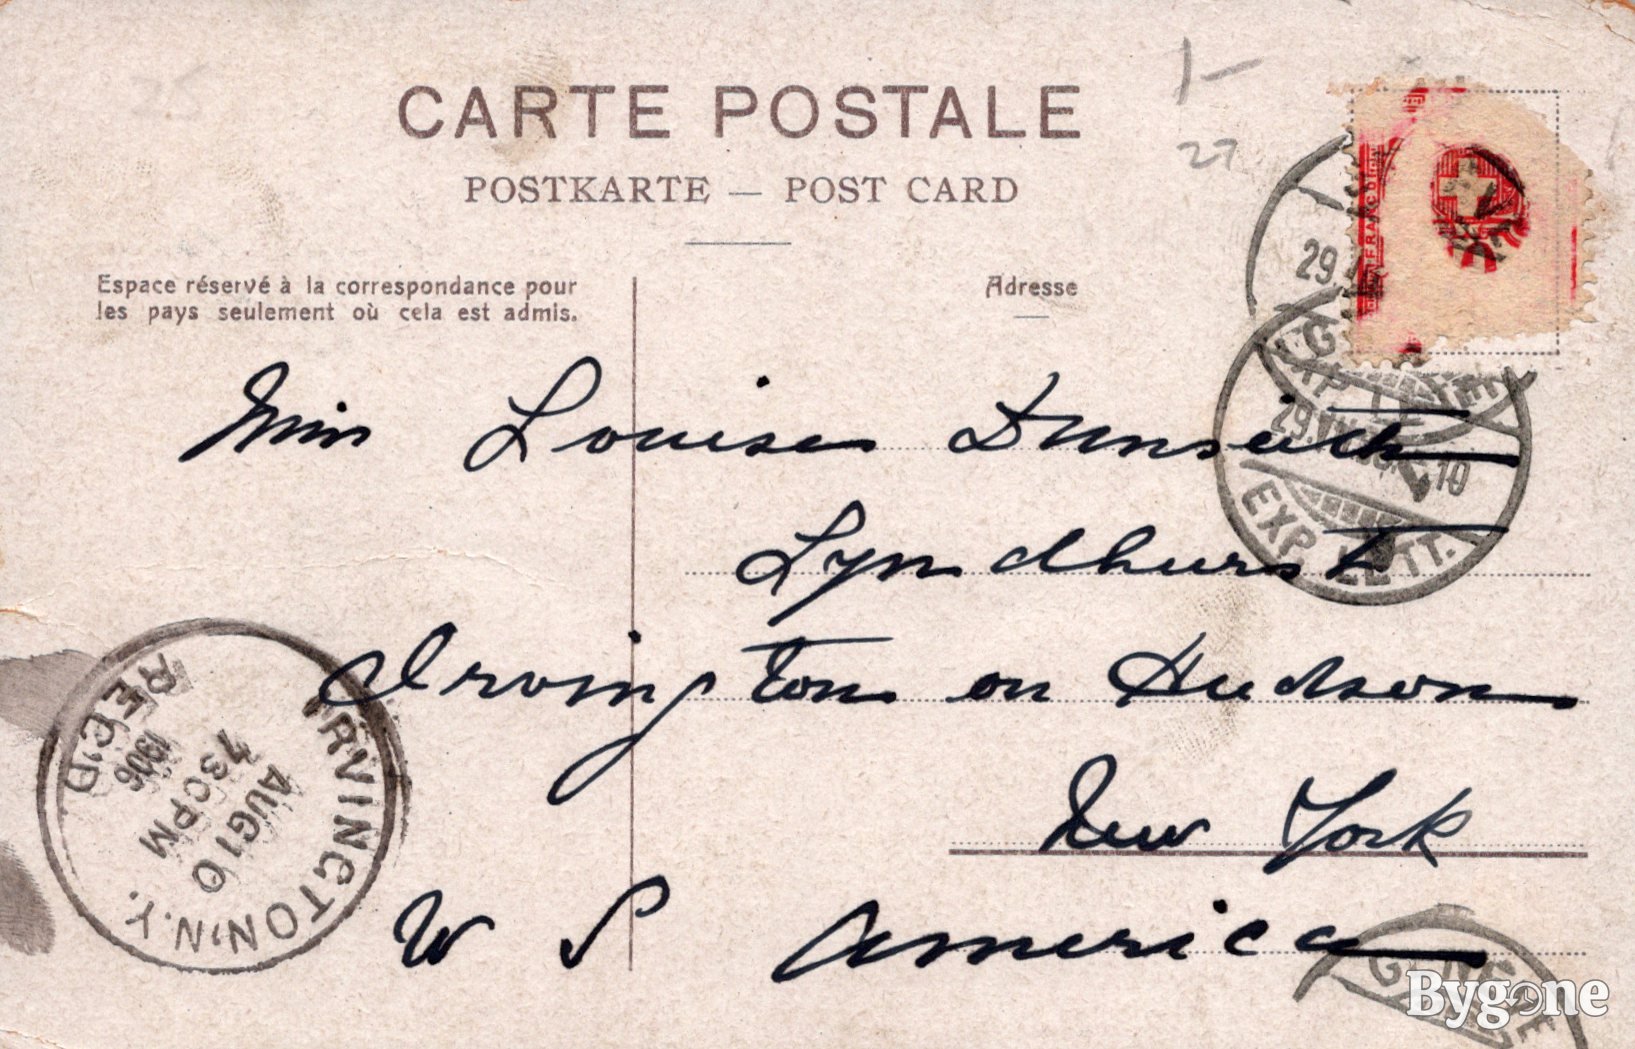 CARTE POSTALE
POSTKARTE — POST CARD
1-
27
Espace réservé à la correspondance pour
les pays seulement où cela est admis.
Adresse
FRANCO
29
29.VII 10
EXP. LETT.
Miss Louise
Lyndhurst
Irvington on Hudson
New York
U S America
IRVINGTON, N.Y.
AUG 10
730PM
1906
REC'D
GENÈVE
Bygone